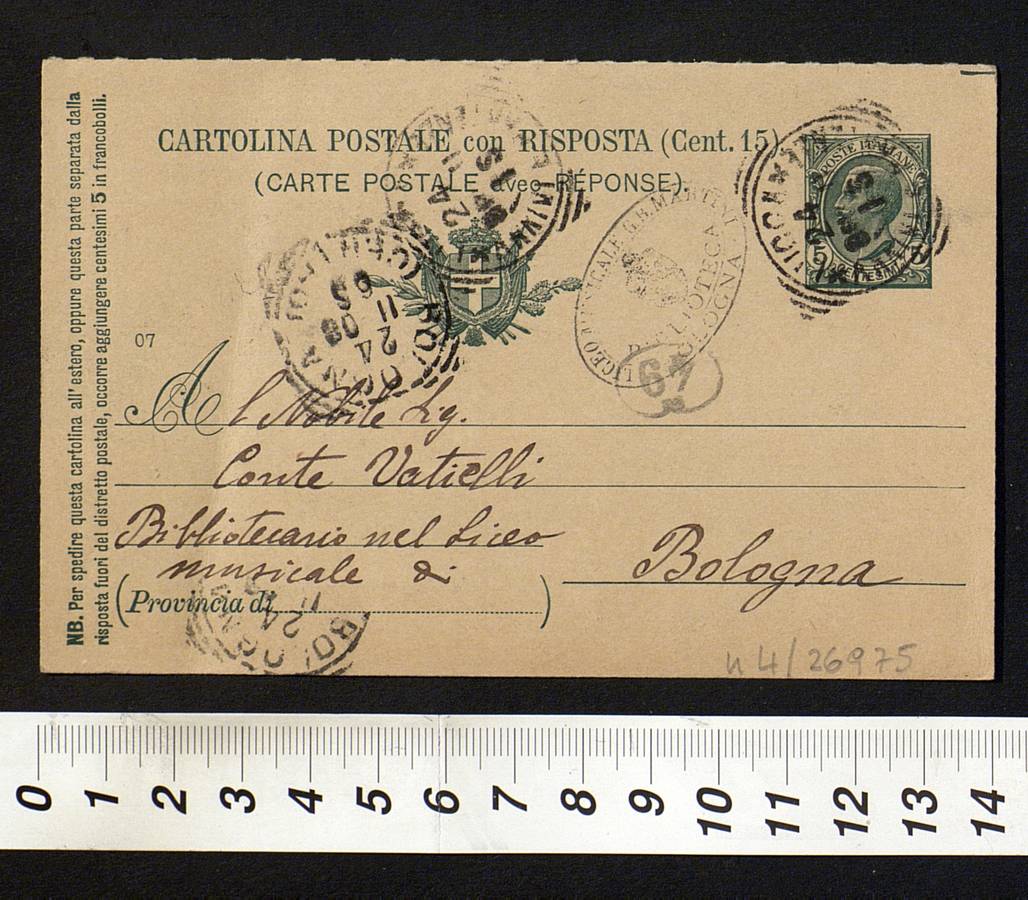 NB. Per spedire questa cartolina all' estero, oppure questa parte separata dalla
risposta fuori del distretto postale, occorre aggiungere centesimi 5 in francobolli.
CARTOLINA POSTALE con RISPOSTA (Cent. 15)
(CARTE POSTALE avec RÉPONSE).
POSTE ITALIANE
LICEO MUSICALE G.B. MARTINI
BIBLIOTECA
BOLOGNA
BOLOGNA
24
11
08
07
67
Al Nobile Sig.
Conte Vatielli
Bibliotecario nel Liceo
musicale di
Bologna
(Provincia di)
BOLOGNA
24
11
n 4/26975
0 1 2 3 4 5 6 7 8 9 10 11 12 13 14